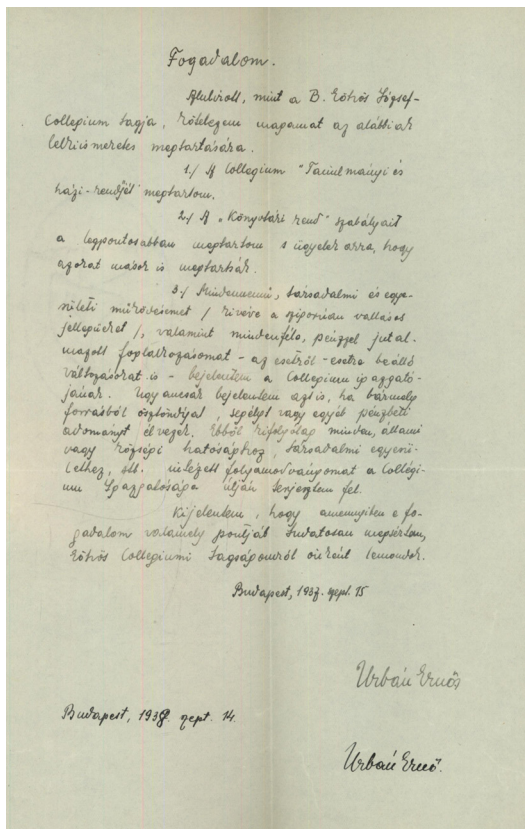 Fogadalom.
Alulírott, mint a B. Eötvös József-
Collegium tagja, kötelezem magamat az alábbiak
lelkiismeretes megtartására.
1./ A Collegium "Tanulmányi és
házi-rendjét" megtartom.
2./ A „Könyvtári rend" szabályait
a legpontosabban megtartom s ügyelek arra, hogy
azokat mások is megtartsák.
3./ Mindennemű, társadalmi és egye-
sületi működésemet / kivéve a szigorúan vallásos
jellegűeket /, valamint mindenféle, pénzzel jutal-
mazott foglalkozásomat - az esetről-esetre beálló
változásokat is - bejelentem a Collegium igazgató-
jának. Ugyancsak bejelentem azt is, ha bármely
forrásból ösztöndíjat, segélyt vagy egyéb pénzbeli
adományt élvezek. Ebből kifolyólag minden, állami
vagy községi hatósághoz, társadalmi egyesü-
lethez, stb. intézett folyamodványomat a Collégi-
um Igazgatósága útján terjesztem fel.
Kijelentem, hogy amennyiben e fo-
gadalom valamely pontját tudatosan megsértem,
Eötvös Collegiumi tagságomról önként lemondok.
Budapest, 1937. szept. 15
Urbán Ernő
Budapest, 1938. szept. 14.
Urbán Ernő.